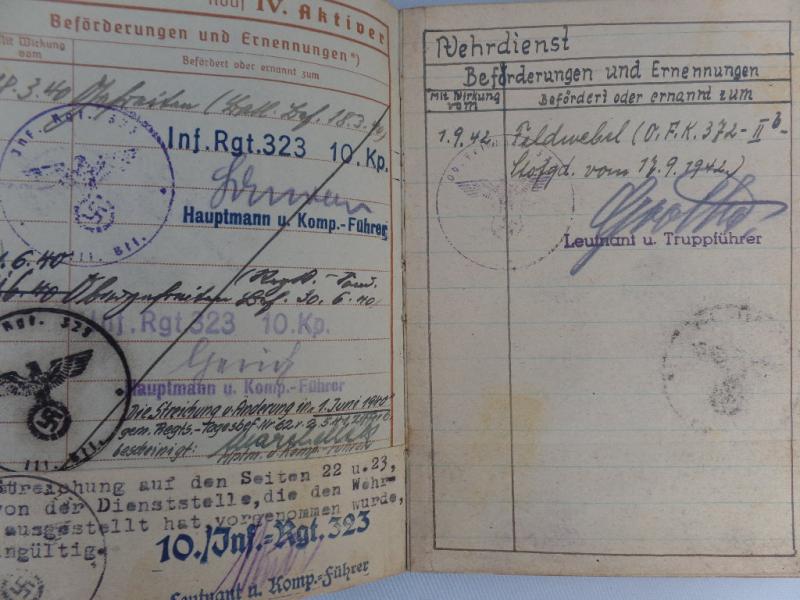 IV. Aktiver
Beförderungen und Ernennungen*)
Mit Wirkung
vom
Befördert oder ernannt zum
8.3.40 Gefreiten (Batl. Bef. 18.3.40)
Inf. Rgt. 323
Inf. Rgt. 323 10. Kp.
Hauptmann u. Komp.-Führer
III. Btl.
.6.40
.6.40 Obergefreiten
Bef. 30.6.40
Rgt. 323
Inf. Rgt 323 10. Kp.
Hauptmann u. Komp.-Führer
Die Streichung u. Änderung in "1. Juni 1940"
gem. Regts.-Tagesbef. Nr 62
bescheinigt:
Hptm. u. Komp.-Führer
III. Btl.
Streichung auf den Seiten 22 u.23,
von der Dienststelle, die den Wehr-
ausgestellt hat vorgenommen wurde,
ungültig.
10./Inf.-Rgt. 323
Leutnant u. Komp.-Führer
Wehrdienst
Beförderungen und Ernennungen
Mit Wirkung
vom
Befördert oder ernannt zum
1.9.42. Feldwebel (O.F.K. 372-IIb-
vom 17.9.1942)
Leutnant u. Truppführer